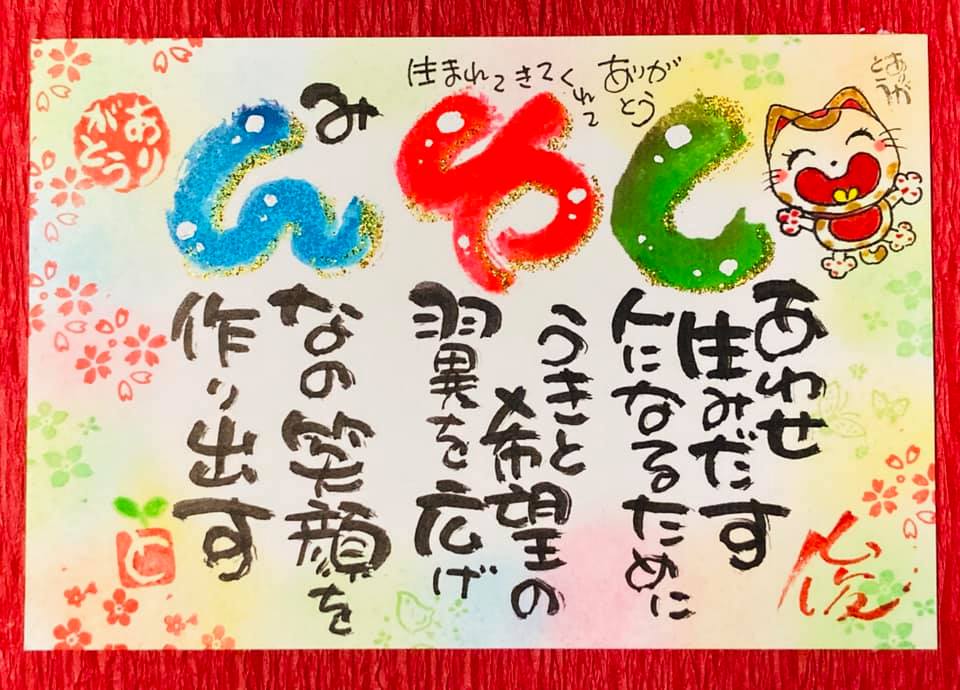 生まれてきてくれて
ありがとう
ありがとう
し
あわせ
生みだす
人になるために
ゆ
うきと
希望の
翼を広げ
み
ん
なの笑顔を
作り出す
ありがとう